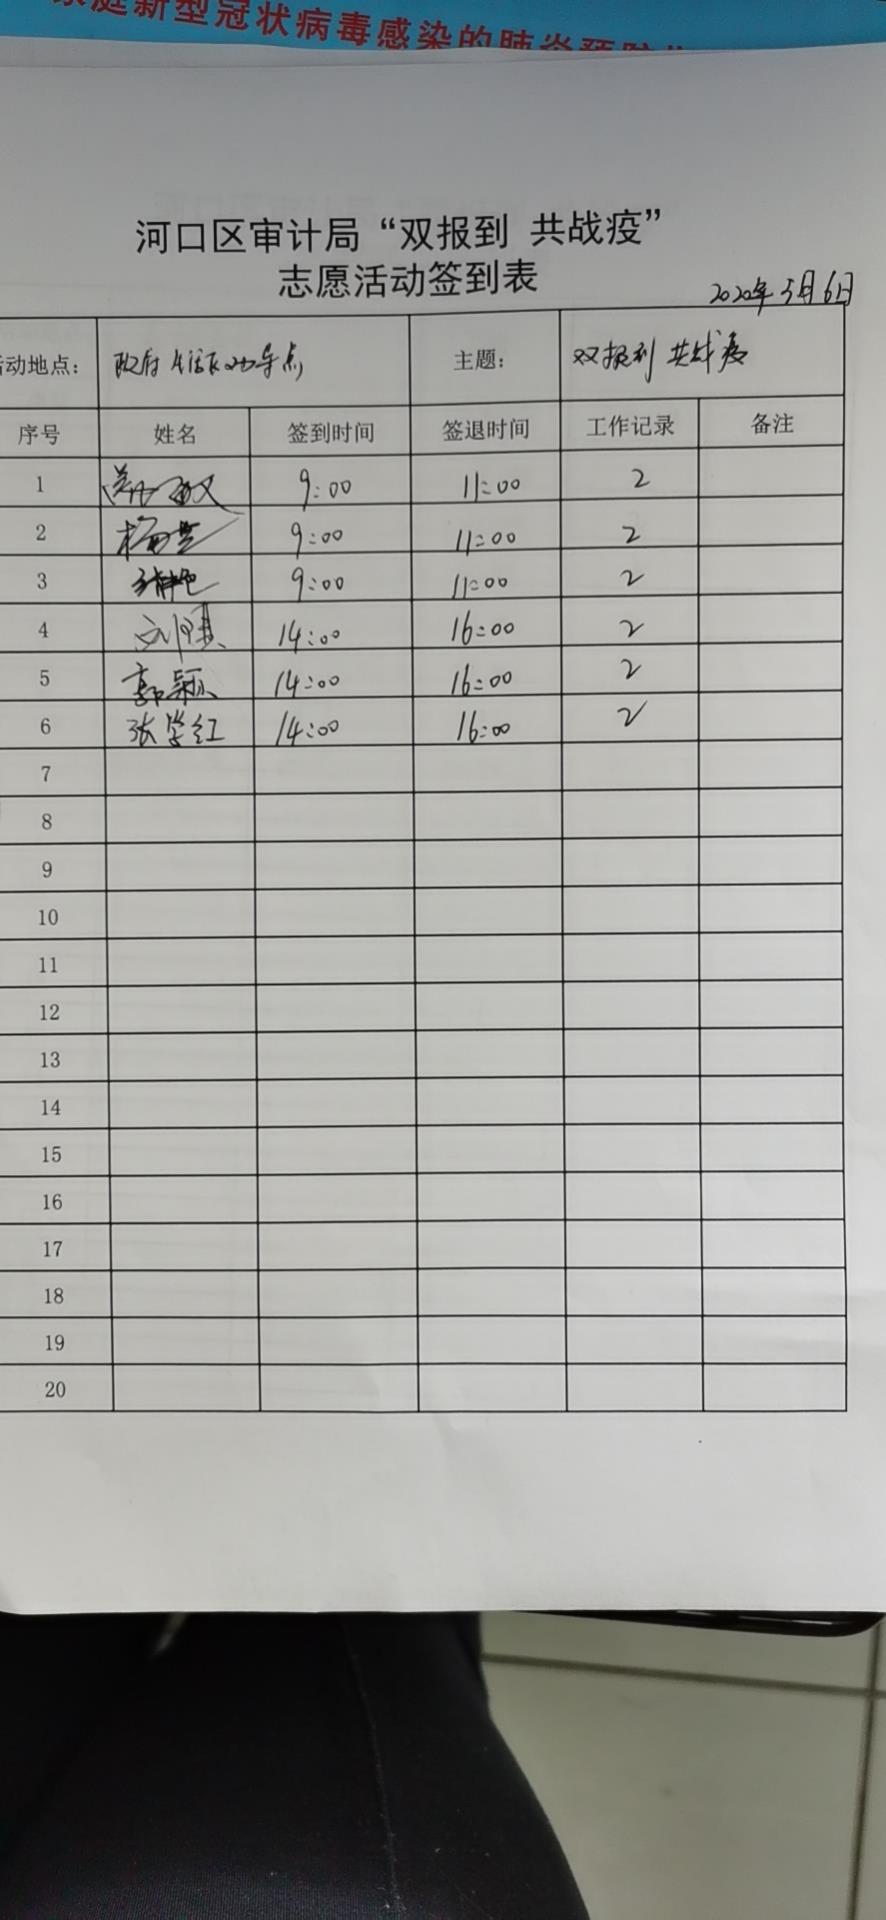 家庭新型冠状病毒感染的肺炎预防
河口区审计局“双报到 共战疫”
志愿活动签到表
2020年3月6日
活动地点： 主题： 双报到 共战疫
序号 姓名 签到时间 签退时间 工作记录 备注
1 9:00 11:00 2
2 9:00 11:00 2
3 9:00 11:00 2
4 14:00 16:00 2
5 郭颖 14:00 16:00 2
6 张学红 14:00 16:00 2
7
8
9
10
11
12
13
14
15
16
17
18
19
20